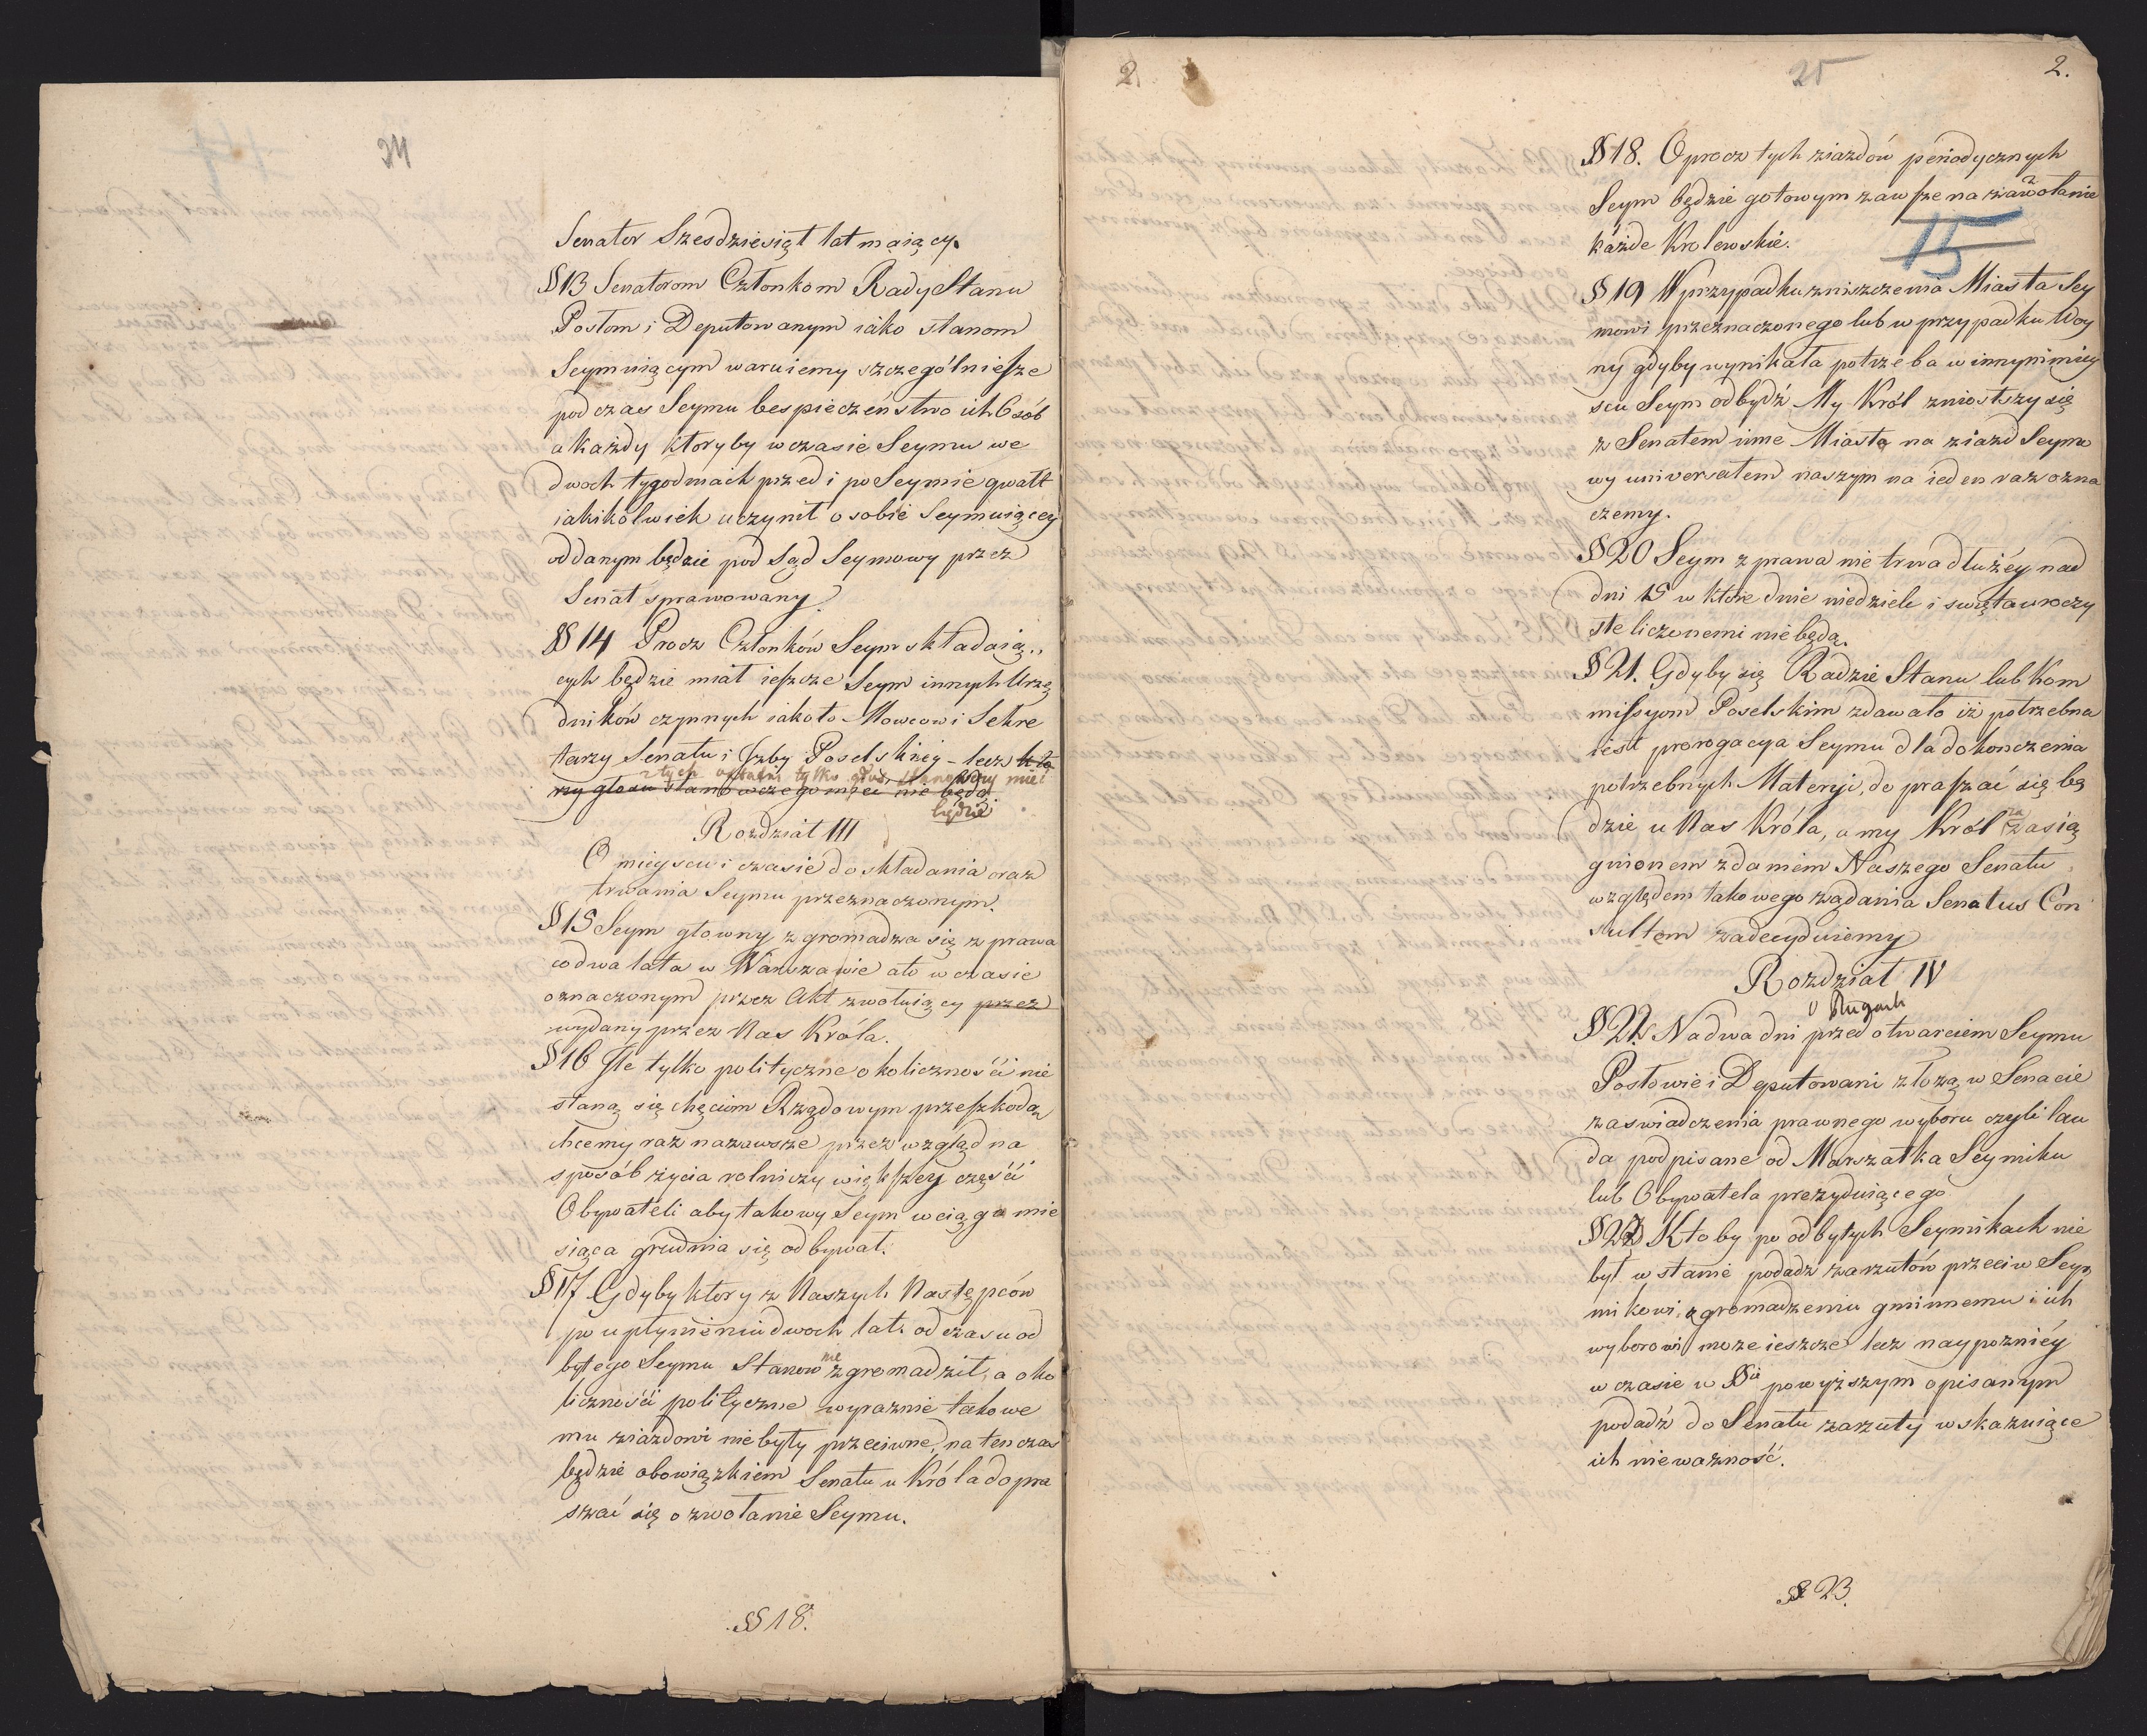 24
Senator Szesdziesiąt lat maiący.
§ 13 Senatorom Członkom Rady Stanu
Posłom i Deputowanym iako stanom
Seymuiącym waruiemy szczególniesze
podczas Seymu bespieczeństwo ich Osób
a każdy ktoryby w czasie Seymu we
dwoch tygodniach przed i po Seymie gwałt
iakikolwiek uczynił osobie Seymuiącey
oddanym będzie pod Sąd Seymowy przez
Senat sprawowany.
§ 14 Procz Członków Seym składaią,,
cych będzie miał ieszcze Seym innych Urzę
dników czynnych iako to Mowcow i Sekre
tarzy Senatu i Izby Poselskiey – lecz któ
z tych ostatni tylko głos stanowczy mieć
rzy głosu stanowczego mieć nie będą.
będzie
Rozdział III
O mieyscu i czasie do składania oraz
trwania Seymu przeznaczonym.
§ 15 Seym głowny zgromadza się z prawa
co dwa lata w Warszawie ato w czasie
oznaczonym przez Akt zwołuiący przez
wydany przez Nas Króla.
§ 16 Ile tylko polityczne okoliczności nie
staną się chęciom Rządowym przeszkodą
chcemy raz nazawsze przez wzgląd na
sposób życia rolniczy większey części
Obywateli aby takowy Seym w ciągu mie
siąca grudnia się odbywał.
§ 17 Gdyby ktory z Naszych Następców
po upłynieniu dwoch lat. od czasu od
bytego Seymu Stanow nie zgromadził, a oko
liczności polityczne wyraznie takowe
mu ziazdowi niebyły przeciwne, na ten czas
będzie obowiązkiem Senatu u Króla dopra
szać się o zwołanie Seymu.
§ 18.
2.
25
2.
§ 18. Oprocz tych ziazdów periodycznych
Seym będzie gotowym zawsze na zawołanie
każde Krolewskie.
15
§ 19 W przypadku zniszczenia Miasta Sey
mowi przeznaczonego lub w przypadku Woy
ny gdyby wynikała potrzeba w innym miey
scu Seym odbydź My Król zniosłszy się
z Senatem inne Miasto na ziazd Seymo
wy uniwersałem naszym na ieden raz ozna
czemy.
§ 20 Seym z prawa nie trwa dłużéy nad
dni 15 w które dnie niedziele i swięta uroczy
ste liczonemi nie będą.
§ 21. Gdyby się Radzie Stanu lub Kom
missyom Poselskim zdawało iż potrzebna
iest prorogacya Seymu dla dokonczenia
potrzebnych Materyi, do praszać się bę
dzie u Nas Króla, a my Król za zasią
gnionem zdaniem Naszego Senatu
względem takowego żądania Senatus Con
sultem zadecyduiemy
Rozdział IV
O Rugach
§ 22. Na dwa dni przed otwarciem Seymu
Posłowie i Deputowani złożą w Senacie
zaswiadczenia prawnego wyboru czyli lau
da podpisane od Marszałka Seymiku
lub Obywatela prezyduiącego
§ 23 Kto by po odbytych Seymikach nie
był w stanie podadz zarzutów przeciw Sey
mikowi, zgromadzeniu gminnemu i ich
wyborowi moze ieszcze lecz naypoznićy
w czasie w §ie powyższym opisanym
podadź do Senatu zarzuty wskazuiące
ich nieważność.
§ 23.